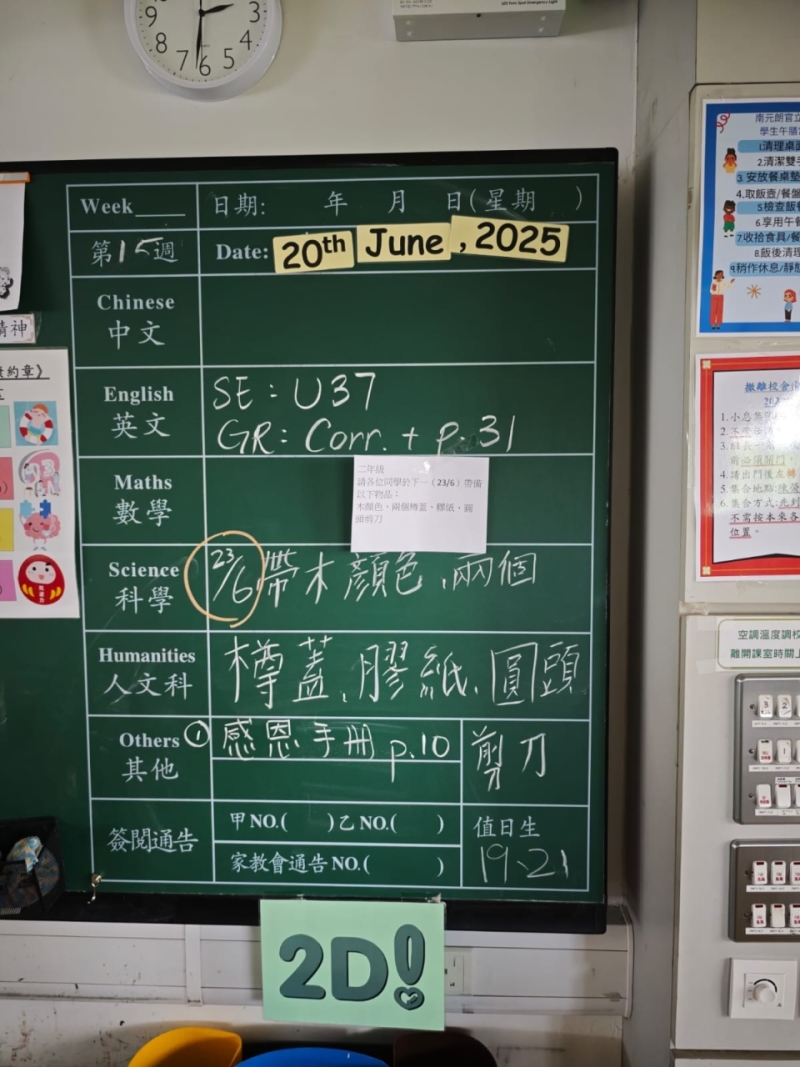 9 8 7 6 5 4 3
Week____ 日期: 年 月 日(星期 )
第15週 Date: 20th June , 2025
Chinese
中文
English
英文
SE: U37
GR: Corr. + p.31
Maths
數學
二年級
請各位同學於下一 (23/6) 帶備
以下物品：
木顏色、兩個樽蓋、膠紙、圓
頭剪刀
Science
科學
23/6 帶木顏色、兩個
Humanities
人文科
樽蓋、膠紙、圓頭
剪刀
Others ①
其他
感恩手冊 p.10
簽閱通告
甲 NO.( ) 乙 NO.( )
家教會通告 NO.( )
值日生
19、21
2D!
精神
約章》
南元朗官立
學生午膳
1清理桌面
2.清潔雙手
3. 安放餐桌墊
4.取飯壺/餐盤
5檢查飯餐
6.享用午餐
7收拾食具/餐
8.飯後清理
9.稍作休息/靜
撤離校舍
1. 小息集
2. 不
3.
4. 請出門後左轉
5. 集合地點:
6. 集合方式:
不需按本來各
位置。
空調溫度調校
離開課室時關上